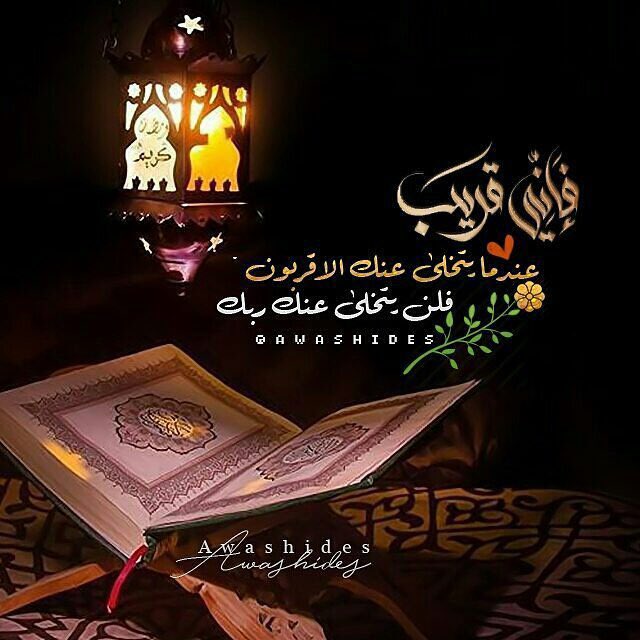 فَإِنِّي قَرِيبٌ
عندما يتخلى عنك الاقربون
فلن يتخلى عنك ربك
@AWASHIDES
كريم
Awashides
Awashides